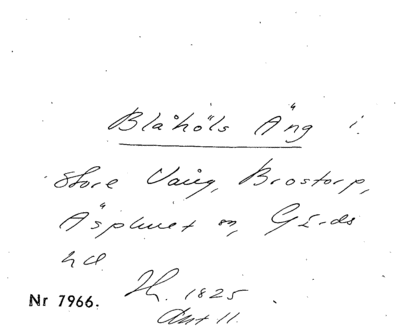 Blåhöls Äng i
Store Vång, Brostorp,
Äsphult sn, Gärds
hd
Nr 7966. 1825
Akt 11.